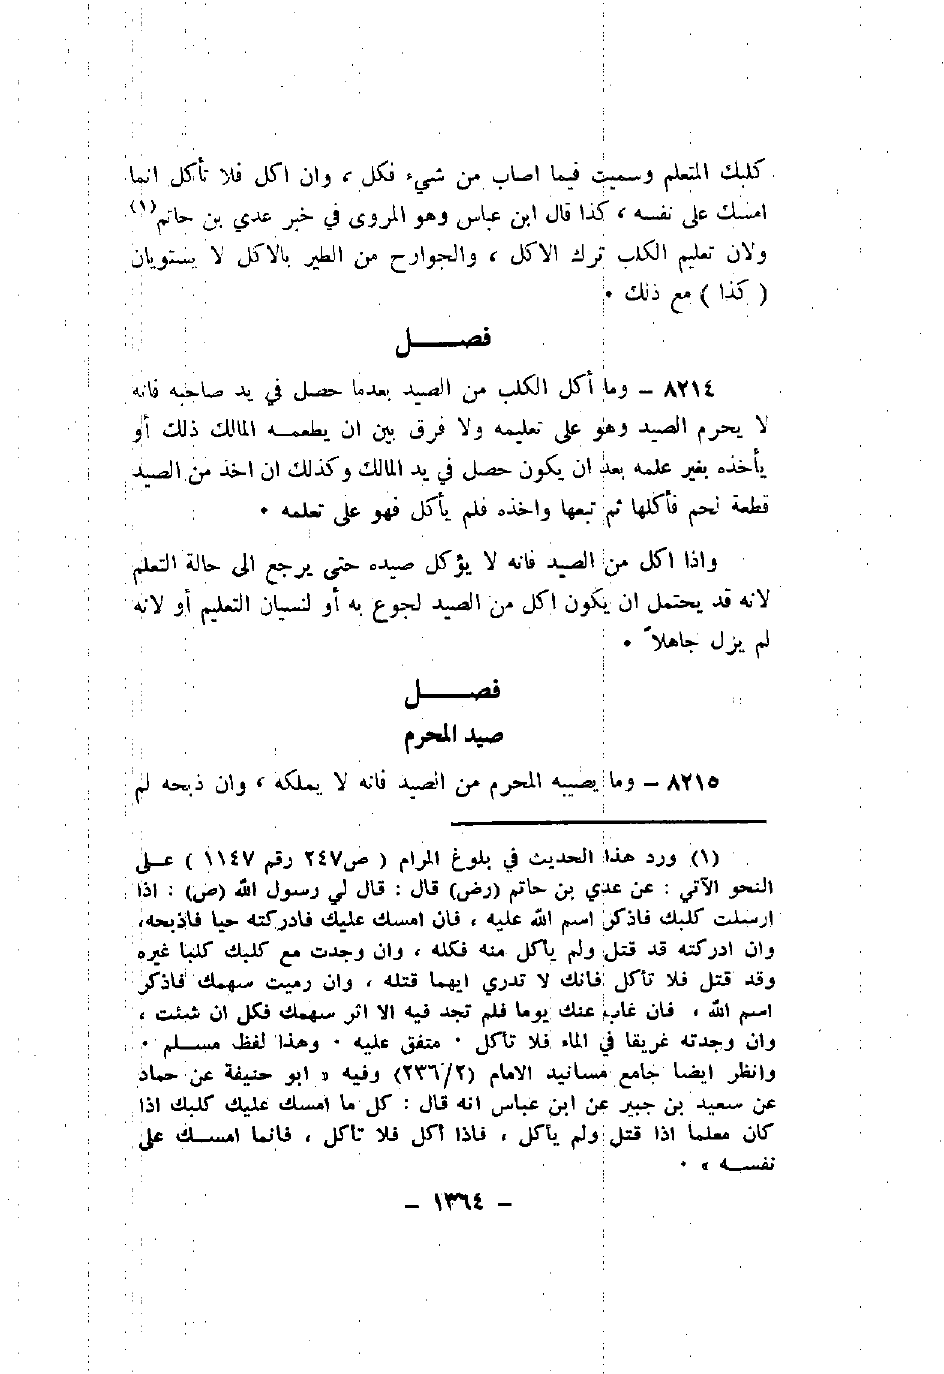 كلبك المتعلم وسميت فيما اصاب من شيء فكل ، وان اكل فلا تأكل انما
امسك على نفسه ، كذا قال ابن عباس وهو المروى في خبر عدي بن حاتم(١)
ولان تعليم الكلب ترك الاكل ، والجوارح من الطير بالاكل لا يستويان
( كذا ) مع ذلك ٠
فصـــــل
٨٢١٤ – وما أكل الكلب من الصيد بعدما حصل في يد صاحبه فانه
لا يحرم الصيد وهو على تعليمه ولا فرق بين ان يطعمـه المالك ذلك أو
يأخذه بغير علمه بعد ان يكون حصل في يد المالك وكذلك ان اخذ من الصيد
قطعة لحم فأكلها ثم تبعها واخذه فلم يأكل فهو على تعلمه ٠
واذا اكل من الصيد فانه لا يؤكل صيده حتى يرجع الى حالة التعلم
لانه قد يحتمل ان يكون اكل من الصيد لجوع به أو لنسيان التعليم أو لانه
لم يزل جاهلاً ٠
فصـــــل
صيد المحرم
٨٢١٥ – وما يصيبه المحرم من الصيد فانه لا يملكه ، وان ذبحه لم
(١) ورد هذا الحديث في بلوغ المرام ( ص٢٤٧ رقم ١١٤٧ ) علـى
النحو الآتي : عن عدي بن حاتم (رض) قال : قال لي رسول الله (ص) : اذا
ارسلت كلبك فاذكر اسم الله عليه ، فان امسك عليك فادركته حيا فاذبحه،
وان ادركته قد قتل ولم يأكل منه فكله ، وان وجدت مع كلبك كلبا غيره
وقد قتل فلا تأكل فانك لا تدري ايهما قتله ، وان رميت سهمك فاذكر
اسم الله ، فان غاب عنك يوما فلم تجد فيه الا اثر سهمك فكل ان شئت ،
وان وجدته غريقا في الماء فلا تأكل ٠ متفق عليه ٠ وهذا لفظ مسـلم ٠
وانظر ايضا جامع مسانيد الامام (٢/٢٣٦) وفيه « ابو حنيفة عن حماد
عن سعيد بن جبير عن ابن عباس انه قال : كل ما امسك عليك كلبك اذا
كان معلما اذا قتل ولم يأكل ، فاذا أكل فلا تأكل ، فانما امسـك على
نفسـه » ٠
– ١٣٦٤ –